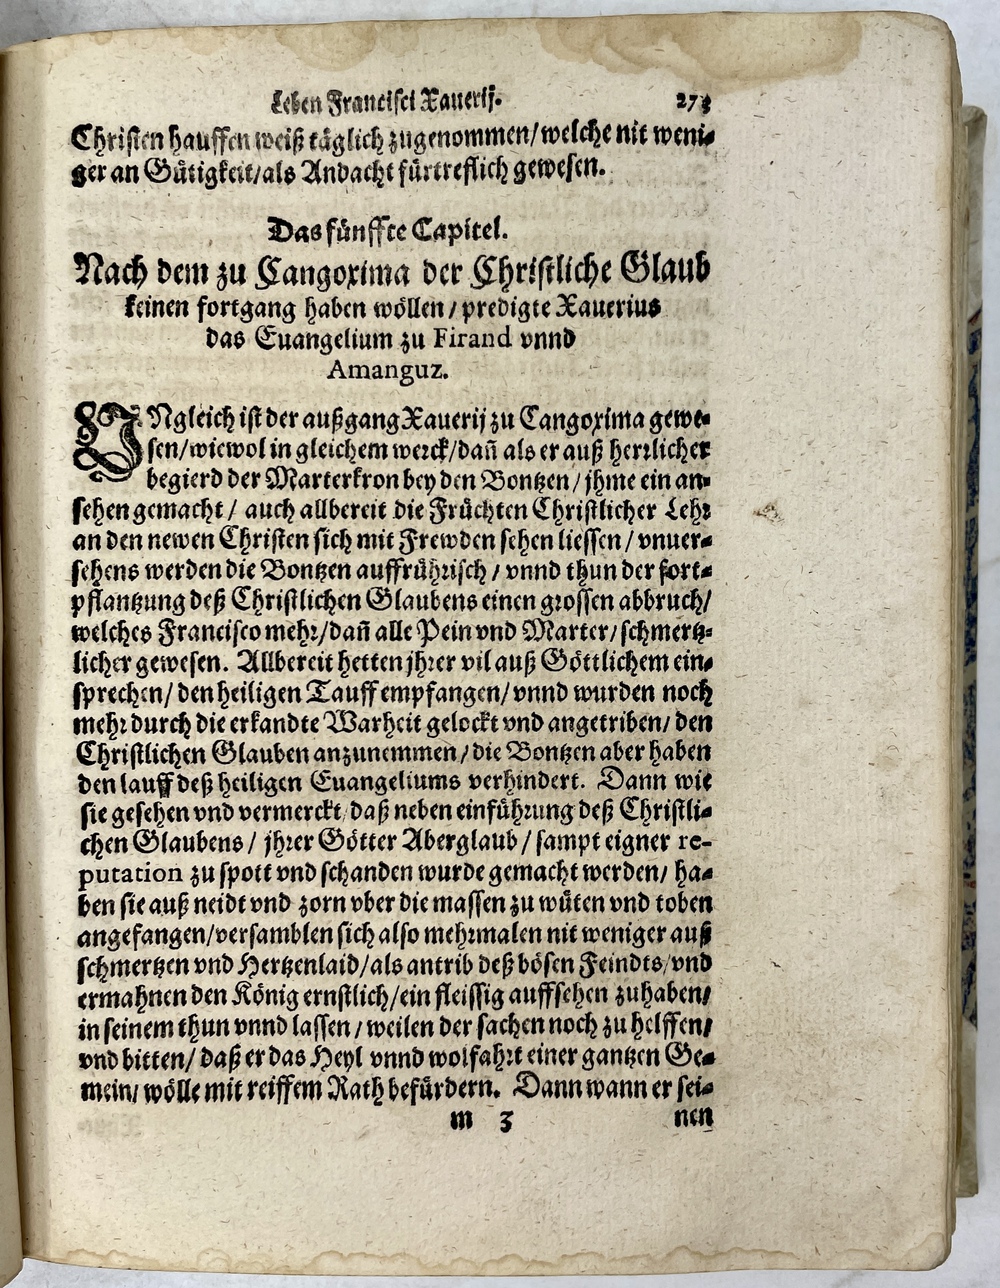 Leben Francisci Xauerij. 273
Christen hauffen weiß täglich zugenommen/welche nit weni-
ger an Gütigkeit/als Andacht fürtreflich gewesen.
Das fünffte Capitel.
Nach dem zu Cangoxima der Christliche Glaub
keinen fortgang haben wöllen/predigte Xauerius
das Euangelium zu Firand vnnd
Amanguz.
VNgleich ist der außgang Xauerij zu Cangoxima gewe-
sen/wiewol in gleichem werck/dañ als er auß herrlicher
begierd der Marterkron bey den Bontzen/jhme ein an-
sehen gemacht/ auch allbereit die Früchten Christlicher Lehr
an den newen Christen sich mit Frewden sehen liessen/vnuer-
sehens werden die Bontzen auffrührisch/vnnd thun der fort-
pflantzung deß Christlichen Glaubens einen grossen abbruch/
welches Francisco mehr/dañ alle Pein vnd Marter/schmertz-
licher gewesen. Allbereit hetten jhrer vil auß Göttlichem ein-
sprechen/den heiligen Tauff empfangen/vnnd wurden noch
mehr durch die erkandte Warheit gelockt vnd angetriben/den
Christlichen Glauben anzunemmen/die Bontzen aber haben
den lauff deß heiligen Euangeliums verhindert. Dann wie
sie gesehen vnd vermerckt/daß neben einführung deß Christli-
chen Glaubens/ jhrer Götter Aberglaub/sampt eigner re-
putation zu spott vnd schanden wurde gemacht werden/ ha-
ben sie auß neidt vnd zorn vber die massen zu wüten vnd toben
angefangen/versamblen sich also mehrmalen nit weniger auß
schmertzen vnd Hertzenlaid/als antrib deß bösen Feindts/vnd
ermahnen den König ernstlich/ein fleissig auffsehen zuhaben/
in seinem thun vnnd lassen/weilen der sachen noch zu helffen/
vnd bitten/daß er das Heyl vnnd wolfahrt einer gantzen Ge-
mein/wölle mit reiffem Rath befürdern. Dann wann er sei-
m 3 nen